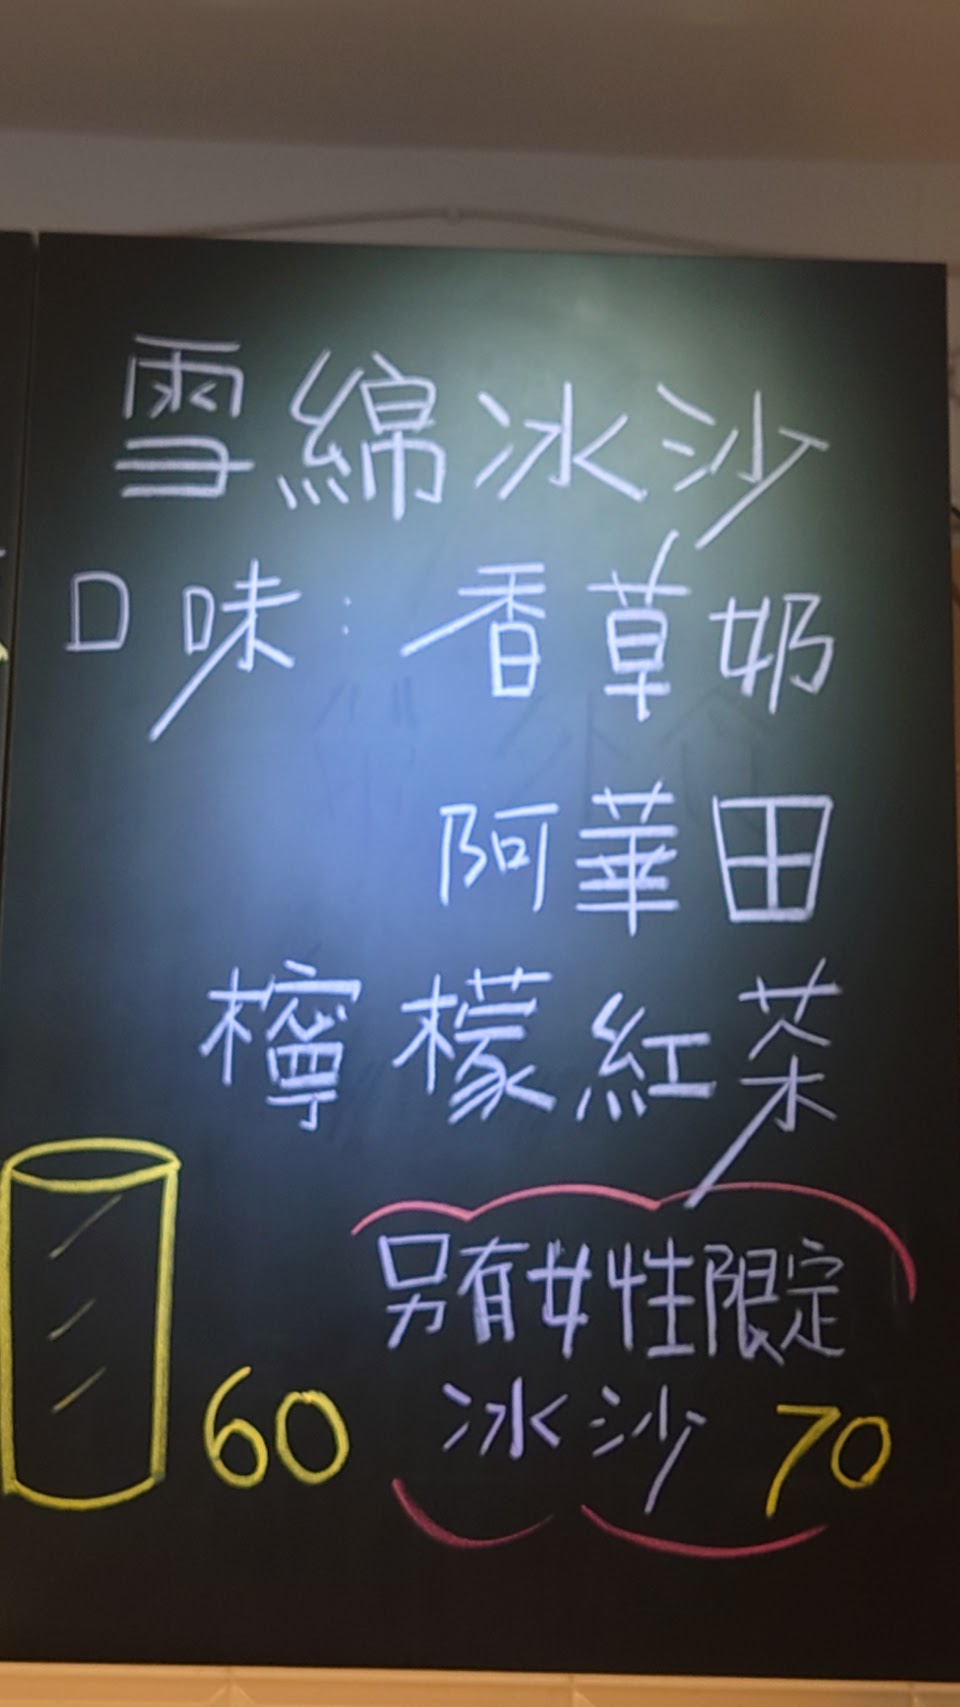 雪綿冰沙
口味：香草奶
阿華田
檸檬紅茶
另有女性限定
60 冰沙 70